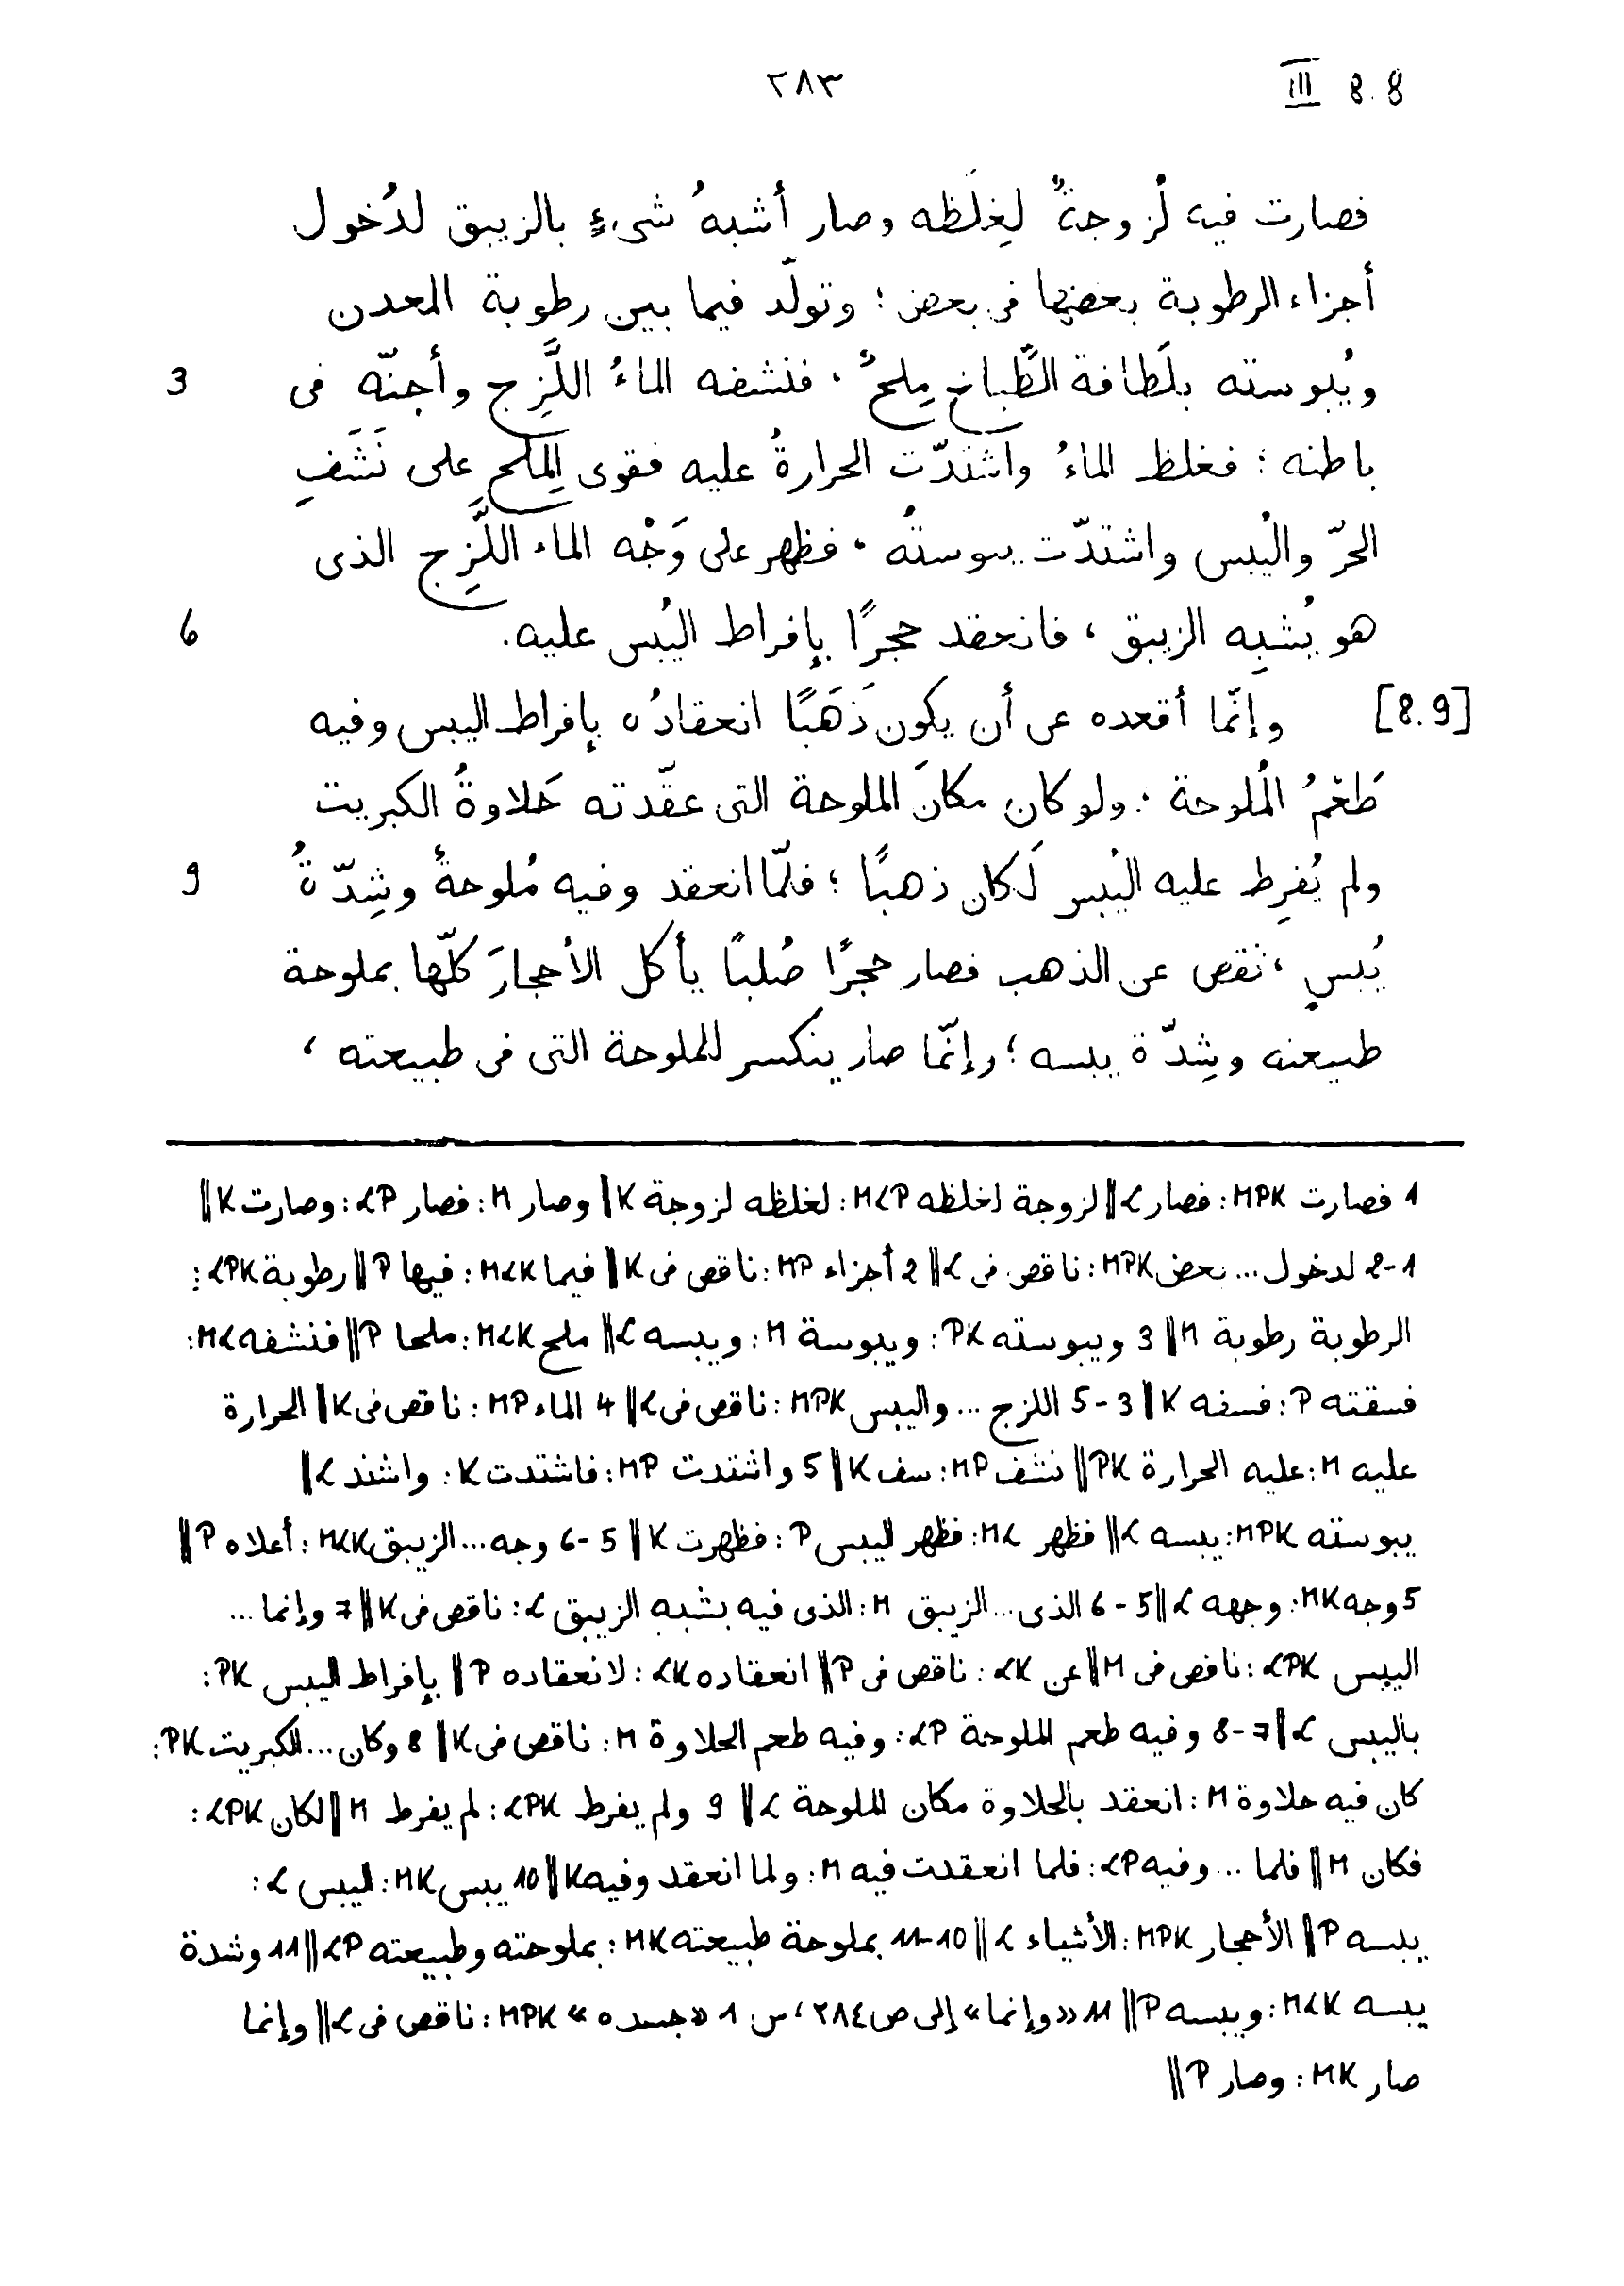 ٢٨٣ III 8.8
فصارت فيه لُزوجةٌ لِغِلَظه وصار أشبهُ شىءٍ بالزيبق لدُخول
أجزاء الرطوبة بعضها فى بعض ؛ وتولّد فيما بين رطوبة المعدن
ويُبوسته بلَطافة الطَّباخ مِلحٌ ، فنشفه الماءُ اللَّزِج وأجنّه فى 3
باطنه ؛ فغلظ الماءُ واشتدّت الحرارةُ عليه فقوى المِلح على نَشَفِ
الحرّ واليُبس واشتدّت يبوستُه ، فظهر على وَجْه الماء اللَّزِج الذى
هو يُشبِه الزيبق ، فانعقد حجرًا بإفراط اليُبس عليه . 6
[8.9] وإنّما أقعده عن أن يكون ذَهَبًا انعقادُه بإفراط اليبس وفيه
طَعْمُ المُلوحة . ولو كان مكانَ الملوحة التى عقّدته حَلاوةُ الكبريت
ولم يُفرِط عليه اليُبس لَكان ذهبًا ؛ فلمّا انعقد وفيه مُلوحةٌ وشِدّةُ 9
يُبسٍ ، نقص عن الذهب فصار حجرًا صُلبًا يأكل الأحجارَ كلّها بملوحة
طبيعته وشِدّة يبسه ؛ وإنّما صار ينكسر للملوحة التى فى طبيعته ،
1 فصارت MPK : فصار L ‖ لزوجة لغلظه MLP : لغلظه لزوجة K ‖ وصار M : فصار LP : وصارت K ‖
1-2 لدخول ... بعض MPK : ناقص فى L ‖ 2 أجزاء MP : ناقص فى K ‖ فيما MLK : فيها P ‖ رطوبة LPK :
الرطوبة رطوبة M ‖ 3 ويبوسته PK : ويبوسة M : ويبسه L ‖ ملح MLK : ملحا P ‖ فنشفه ML :
فسقته P : فسفه K ‖ 3-5 اللزج ... واليبس MPK : ناقص فى L ‖ 4 الماء MP : ناقص فى K ‖ الحرارة
عليه M : عليه الحرارة PK ‖ نشف MP : سف K ‖ 5 واشتدت MP : فاشتدت K : واشتد L ‖
يبوسته MPK : يبسه L ‖ فظهر ML : فظهر اليبس P : فظهرت K ‖ 5-6 وجه ... الزيبق MLK : أعلاه P ‖
5 وجه MK : وجهه L ‖ 5-6 الذى ... الزيبق M : الذى فيه يشبه الزيبق L : ناقص فى K ‖ 7 وإنما ...
اليبس LPK : ناقص فى M ‖ عن LK : ناقص فى P ‖ انعقاده LK : لانعقاده P ‖ بإفراط اليبس PK :
باليبس L ‖ 7-8 وفيه طعم الملوحة LP : وفيه طعم الحلاوة M : ناقص فى K ‖ 8 وكان ... الكبريت PK :
كان فيه حلاوة M : انعقد بالحلاوة مكان الملوحة L ‖ 9 ولم يفرط LPK : لم يفرط M ‖ لكان LPK :
فكان M ‖ فلما ... وفيه LP : فلما انعقدت فيه M : ولما انعقد وفيه K ‖ 10 يبس MK : اليبس L :
يبسه P ‖ الأحجار MPK : الأشياء L ‖ 10-11 بملوحة طبيعته MK : بملوحته وطبيعته LP ‖ 11 وشدة
يبسه MLK : ويبسه P ‖ 11 «وإنما» إلى ص ٢٨٤ ، س 1 «جسده» MPK : ناقص فى L ‖ وإنما
صار MK : وصار P ‖